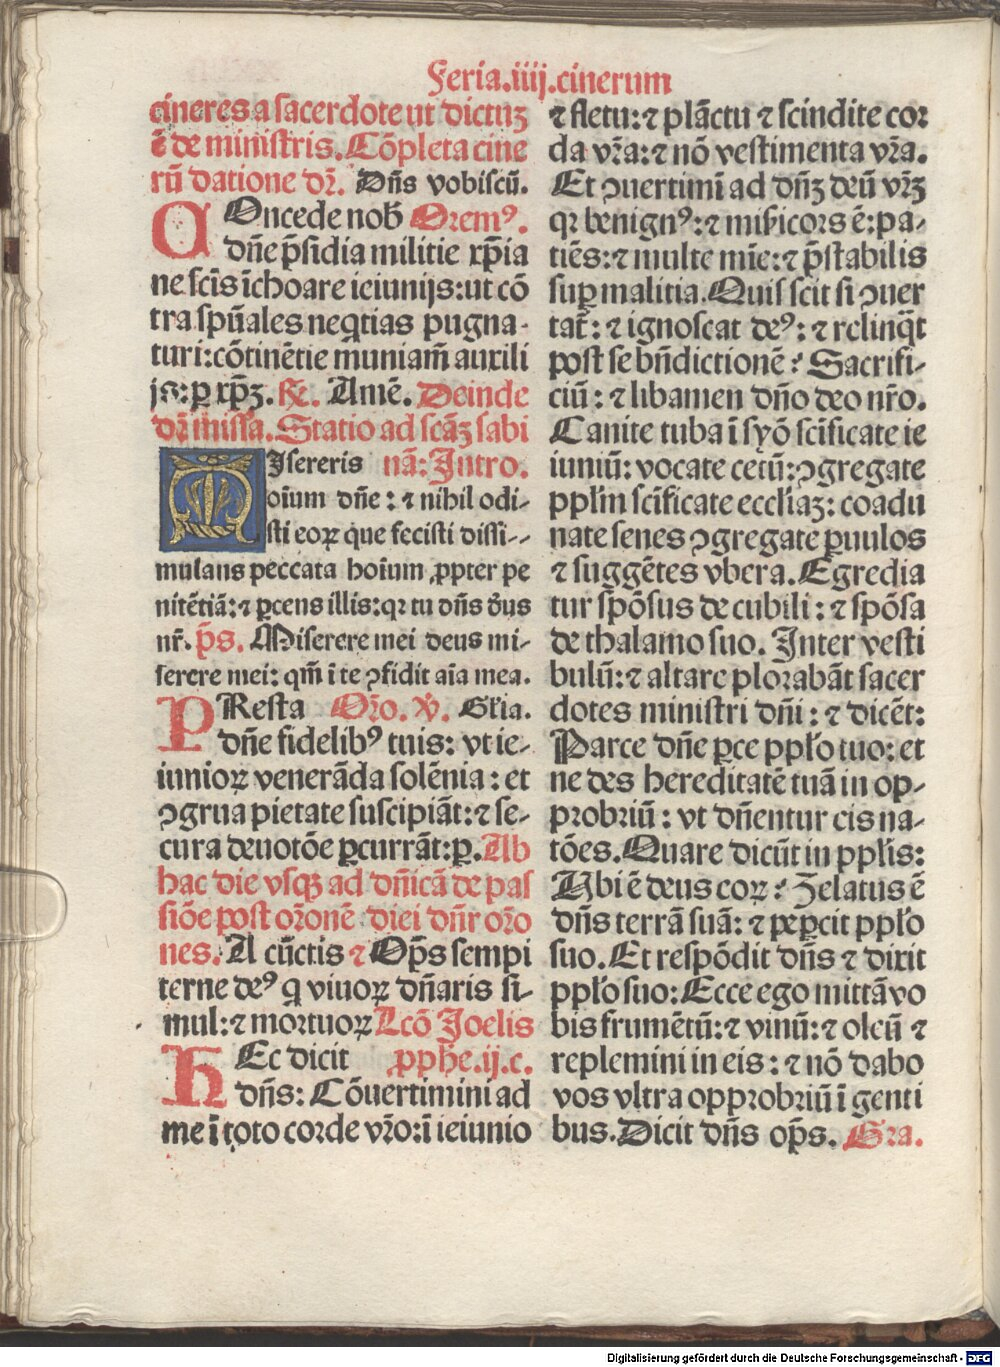 Feria.iiij.cinerum
cineres a sacerdote ut dictuꝫ
ē de ministris. Cōpleta cine
rū datione dr̄. Dn̄s vobiscū.
COncede nob̄ Orem⁹.
dn̄e p̄sidia militie xp̄ia
ne sc̄is īchoare ieiunijs: ut cō
tra sp̄uales neq̄tias pugna-
turi: cōtinētie muniam̄ auxili
js: ꝑ xp̄ꝫ. ℞. Amē. Deinde
dr̄ missa. Statio ad scāꝫ sabi
MIsereris nā: Intro.
oīum dn̄e: ⁊ nihil odi-
sti eoꝝ que fecisti dissi-
mulans peccata hoīum ꝓpter pe
nitētiā: ⁊ ꝑcens illis: qꝛ tu dn̄s de̅us
nr̄. p̄s. Miserere mei deus mi-
serere mei: qm̄ ī te ꝯfidit aīa mea.
PResta Oro. ℣. Gl̄ia.
dn̄e fidelib⁹ tuis: vt ie-
iunioꝝ venerāda solēnia: et
ꝯgrua pietate suscipiāt: ⁊ se-
cura deuotōe ꝑcurrāt: ꝑ. Ab
hac die vsqꝫ ad dn̄icā de pas
siōe post orōnē diei dn̄r oro
nes. A cūctis ⁊ Op̄s sempi
terne de⁹ q viuoꝝ dn̄aris si-
mul: ⁊ mortuoꝝ Lcō Joelis
HEc dicit ꝓphe.ij.c.
dn̄s: Cōuertimini ad
me ī toto corde vr̄o: ī ieiunio
⁊ fletu: ⁊ plāctu ⁊ scindite cor
da vr̄a: ⁊ nō vestimenta vr̄a.
Et ꝯuertimī ad dn̄ꝫ deū vr̄ꝫ
qꝛ benign⁹: ⁊ misicors ē: pa-
tiēs: ⁊ multe mīe: ⁊ p̄stabilis
suꝑ malitia. Quis scit si ꝯuer
tat̄: ⁊ ignoscat de⁹: ⁊ relinq̄t
post se bn̄dictionē? Sacrifi-
ciū: ⁊ libamen dn̄o deo nr̄o.
Canite tuba ī syō sc̄ificate ie
iuniū: vocate cetū: ꝯgregate
pplm̄ sc̄ificate eccl̄iaꝫ: coadu
nate senes ꝯgregate ꝑuulos
⁊ suggētes vbera. Egredia
tur spōsus de cubili: ⁊ spōsa
de thalamo suo. Inter vesti
bulū: ⁊ altare plorabāt sacer
dotes ministri dn̄i: ⁊ dicēt:
Parce dn̄e ꝑce pplo tuo: et
ne des hereditatē tuā in op-
probriū: vt dn̄entur eis na-
tōes. Quare dicūt in pplis:
Ubi ē deus eoꝝ? Zelatus ē
dn̄s terrā suā: ⁊ peꝑcit pplo
suo. Et respōdit dn̄s ⁊ dixit
pplo suo: Ecce ego mittā vo
bis frumētū: ⁊ vinū: ⁊ oleū ⁊
replemini in eis: ⁊ nō dabo
vos vltra opprobriū ī genti
bus. Dicit dn̄s op̄s. Gra.
Digitalisierung gefördert durch die Deutsche Forschungsgemeinschaft - DFG